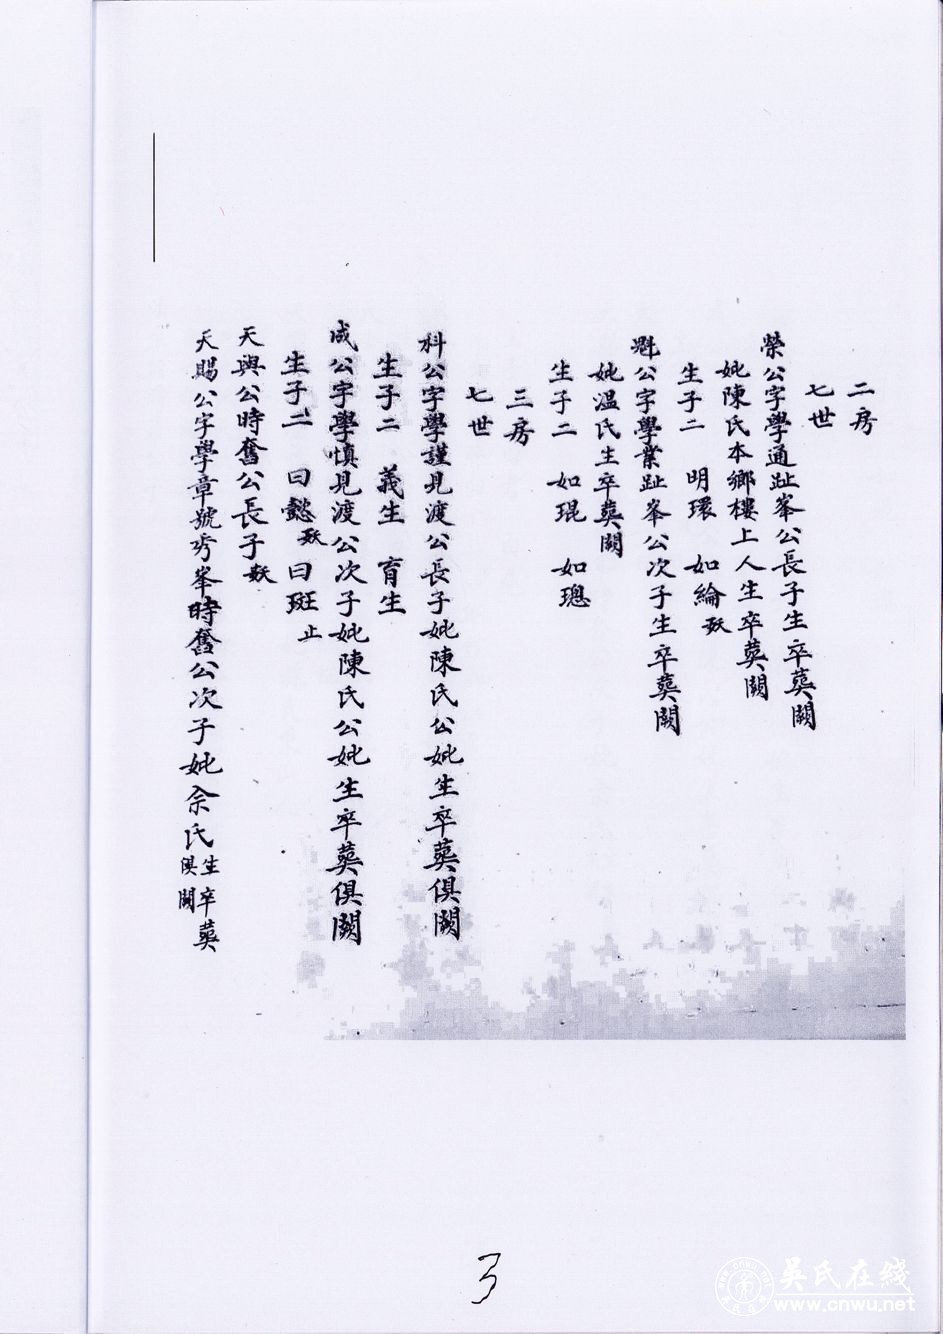 二房
七世
榮公字學通趾峯公長子生卒葬闕
妣陳氏本鄉樓上人生卒葬闕
生子二 明環 如綸 歿
魁公字學業趾峯公次子生卒葬闕
妣溫氏生卒葬闕
生子二 如琨 如璁
三房
七世
科公字學謹見渡公長子妣陳氏公妣生卒葬俱闕
生子二 義生 育生
成公字學慎見渡公次子妣陳氏公妣生卒葬俱闕
生子二 曰懿 歿 曰珏 止
天與公時奮公長子 歿
天賜公字學章號秀峯時奮公次子妣佘氏 生卒葬俱闕
3
吳氏在綫
www.cnwu.net